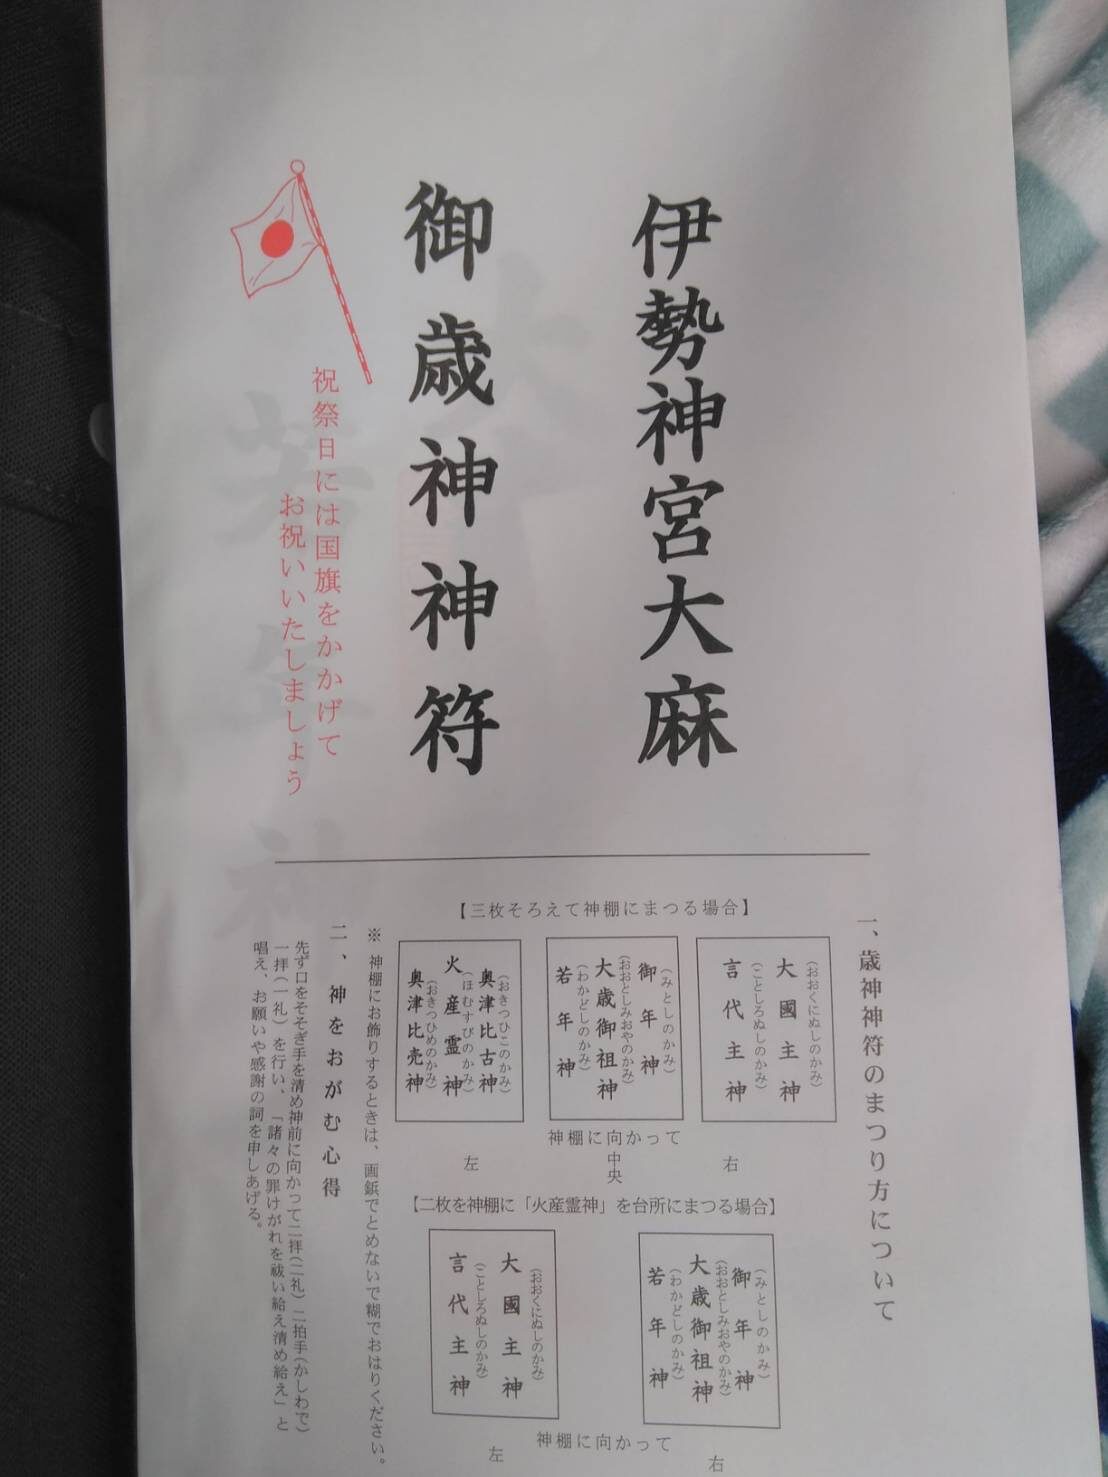 伊勢神宮大麻
御歳神神符
祝祭日には国旗をかかげて
お祝いいたしましょう
一、歳神神符のまつり方について
【三枚そろえて神棚にまつる場合】
(おおくにぬしのかみ)
大國主神
(ことしろぬしのかみ)
言代主神
(みとしのかみ)
御年神
(おおとしみおやのかみ)
大歳御祖神
(わかどしのかみ)
若年神
(おきつひこのかみ)
奥津比古神
(ほむすびのかみ)
火産霊神
(おきつひめのかみ)
奥津比売神
神棚に向かって
右
中央
左
【二枚を神棚に「火産霊神」を台所にまつる場合】
(みとしのかみ)
御年神
(おおとしみおやのかみ)
大歳御祖神
(わかどしのかみ)
若年神
(おおくにぬしのかみ)
大國主神
(ことしろぬしのかみ)
言代主神
神棚に向かって
右
左
※神棚にお飾りするときは、画鋲でとめないで糊でおはりください。
二、神をおがむ心得
先ず口をそそぎ手を清め神前に向かって二拝(二礼)二拍手(かしわで)
一拝(一礼)を行い、「諸々の罪けがれを祓い給え清め給え」と
唱え、お願いや感謝の詞を申しあげる。